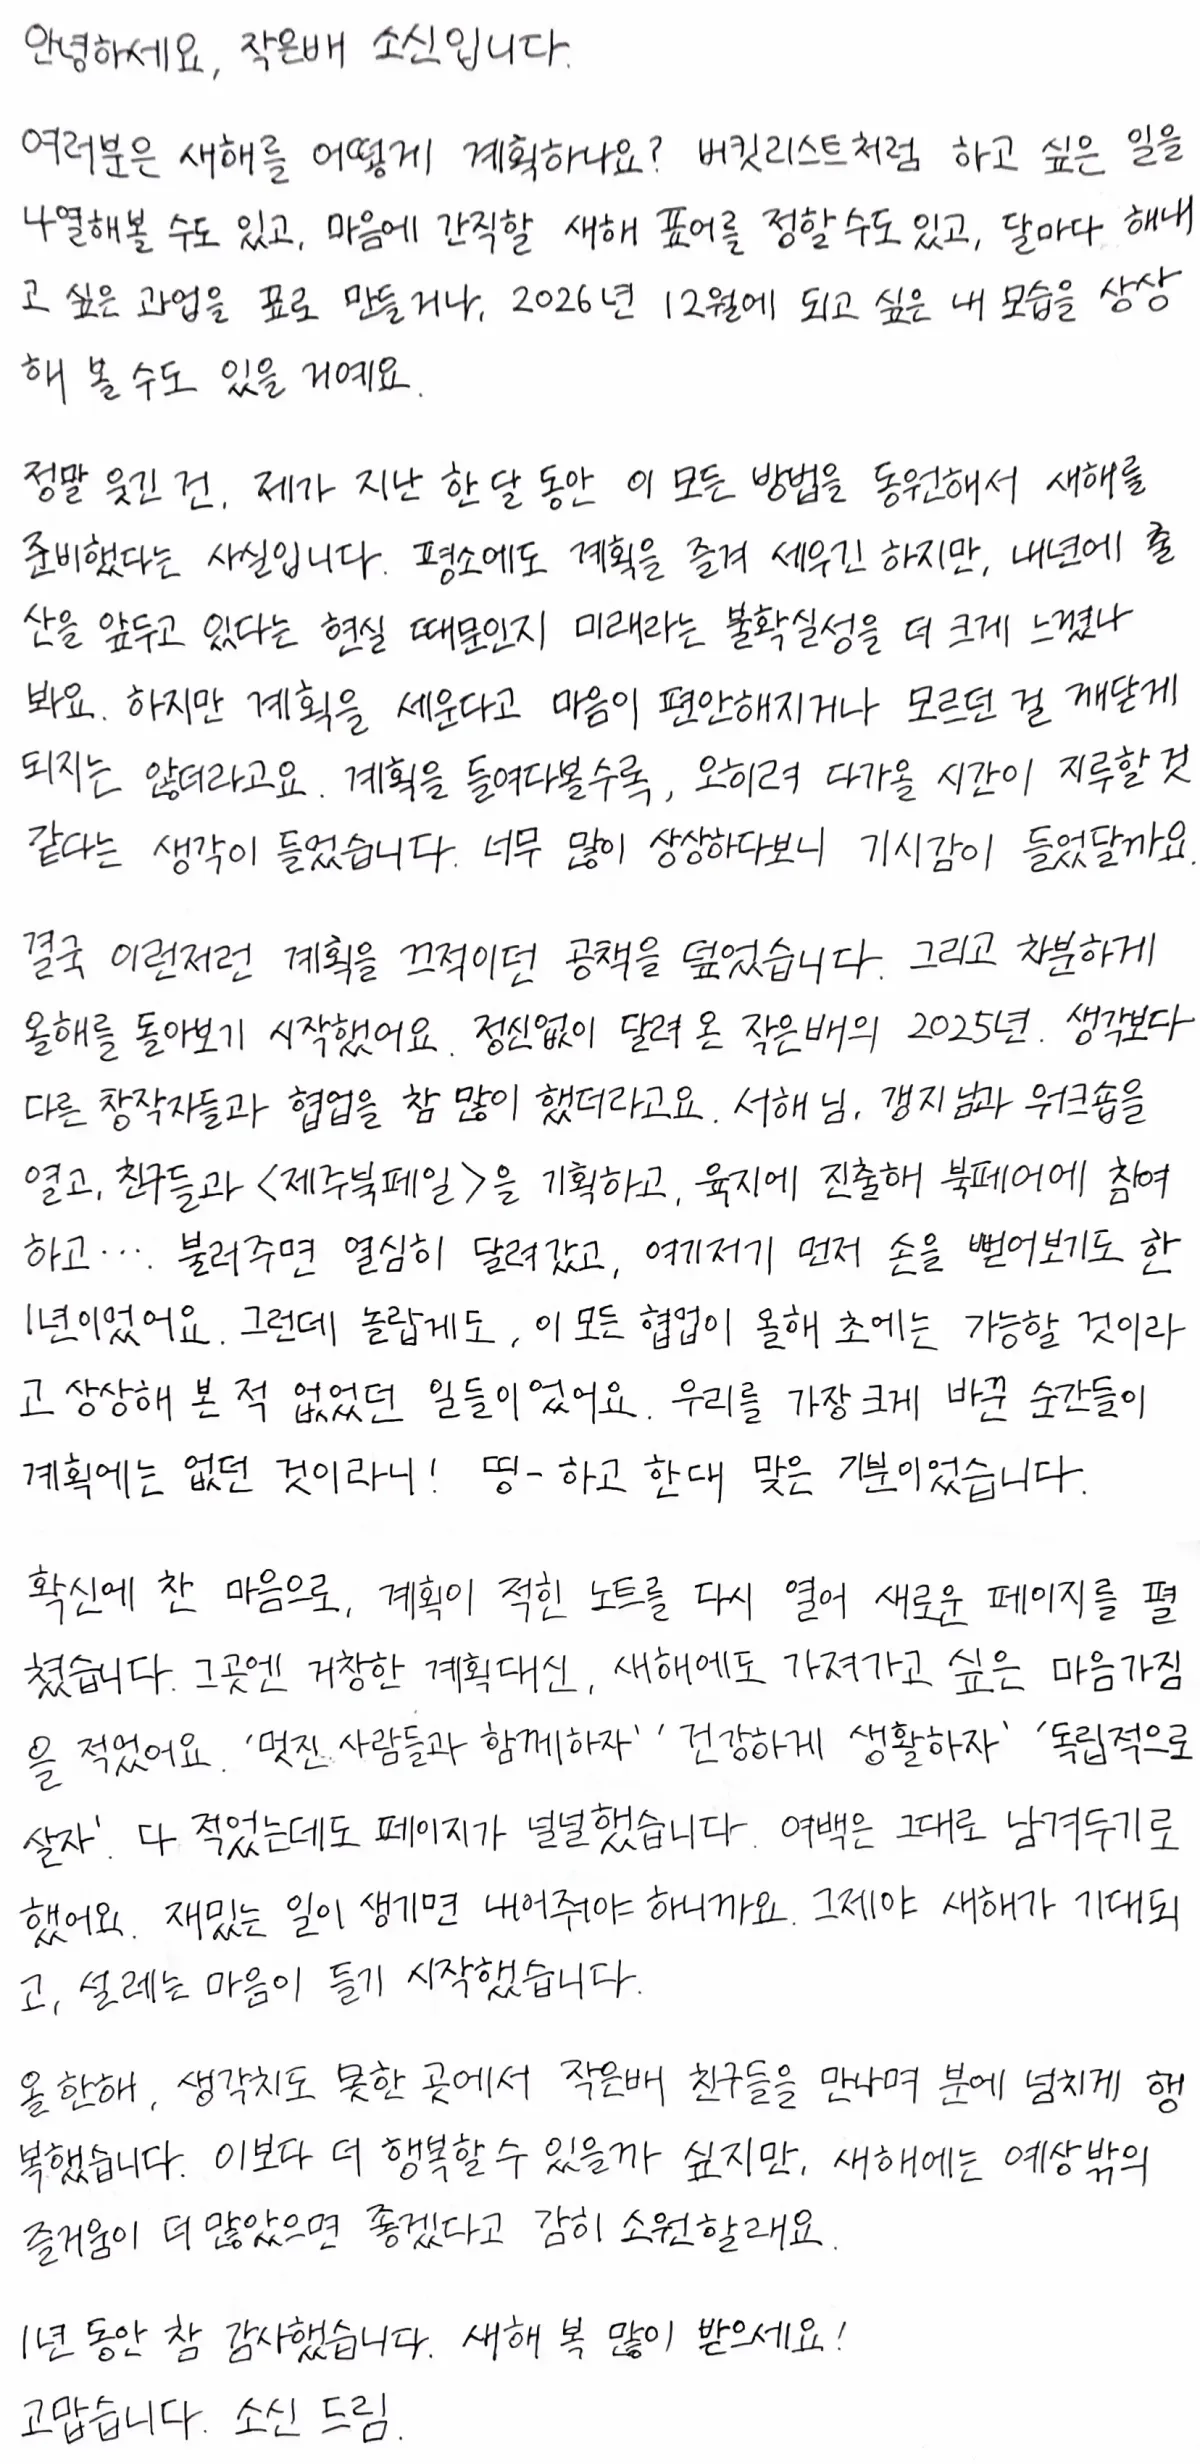 안녕하세요, 작은배 소신입니다.
여러분은 새해를 어떻게 계획하나요? 버킷리스트처럼 하고 싶은 일을
나열해볼 수도 있고, 마음에 간직할 새해 표어를 정할 수도 있고, 달마다 해내
고 싶은 과업을 표로 만들거나, 2026년 12월에 되고 싶은 내 모습을 상상
해 볼 수도 있을 거예요.
정말 웃긴 건, 제가 지난 한 달 동안 이 모든 방법을 동원해서 새해를
준비했다는 사실입니다. 평소에도 계획을 즐겨 세우긴 하지만, 내년에 출
산을 앞두고 있다는 현실 때문인지 미래라는 불확실성을 더 크게 느꼈나
봐요. 하지만 계획을 세운다고 마음이 편안해지거나 모르던 걸 깨닫게
되지는 않더라고요. 계획을 들여다볼수록, 오히려 다가올 시간이 지루할 것
같다는 생각이 들었습니다. 너무 많이 상상하다보니 기시감이 들었달까요.
결국 이런저런 계획을 끄적이던 공책을 덮었습니다. 그리고 차분하게
올해를 돌아보기 시작했어요. 정신없이 달려 온 작은배의 2025년. 생각보다
다른 창작자들과 협업을 참 많이 했더라고요. 서해 님, 갱지 님과 워크숍을
열고, 친구들과 <제주북페일>을 기획하고, 육지에 진출해 북페어에 참여
하고···. 불러주면 열심히 달려갔고, 여기저기 먼저 손을 뻗어보기도 한
1년이었어요. 그런데 놀랍게도, 이 모든 협업이 올해 초에는 가능할 것이라
고 상상해 본 적 없었던 일들이었어요. 우리를 가장 크게 바꾼 순간들이
계획에는 없던 것이라니! 띵- 하고 한 대 맞은 기분이었습니다.
확신에 찬 마음으로, 계획이 적힌 노트를 다시 열어 새로운 페이지를 펼
쳤습니다. 그곳엔 거창한 계획 대신, 새해에도 가져가고 싶은 마음가짐
을 적었어요. '멋진 사람들과 함께하자' '건강하게 생활하자' '독립적으로
살자'. 다 적었는데도 페이지가 널널했습니다. 여백은 그대로 남겨두기로
했어요. 재밌는 일이 생기면 내어줘야 하니까요. 그제야 새해가 기대되
고, 설레는 마음이 들기 시작했습니다.
올 한해, 생각치도 못한 곳에서 작은배 친구들을 만나며 분에 넘치게 행
복했습니다. 이보다 더 행복할 수 있을까 싶지만, 새해에는 예상밖의
즐거움이 더 많았으면 좋겠다고 감히 소원할래요.
1년 동안 참 감사했습니다. 새해 복 많이 받으세요!
고맙습니다. 소신 드림.